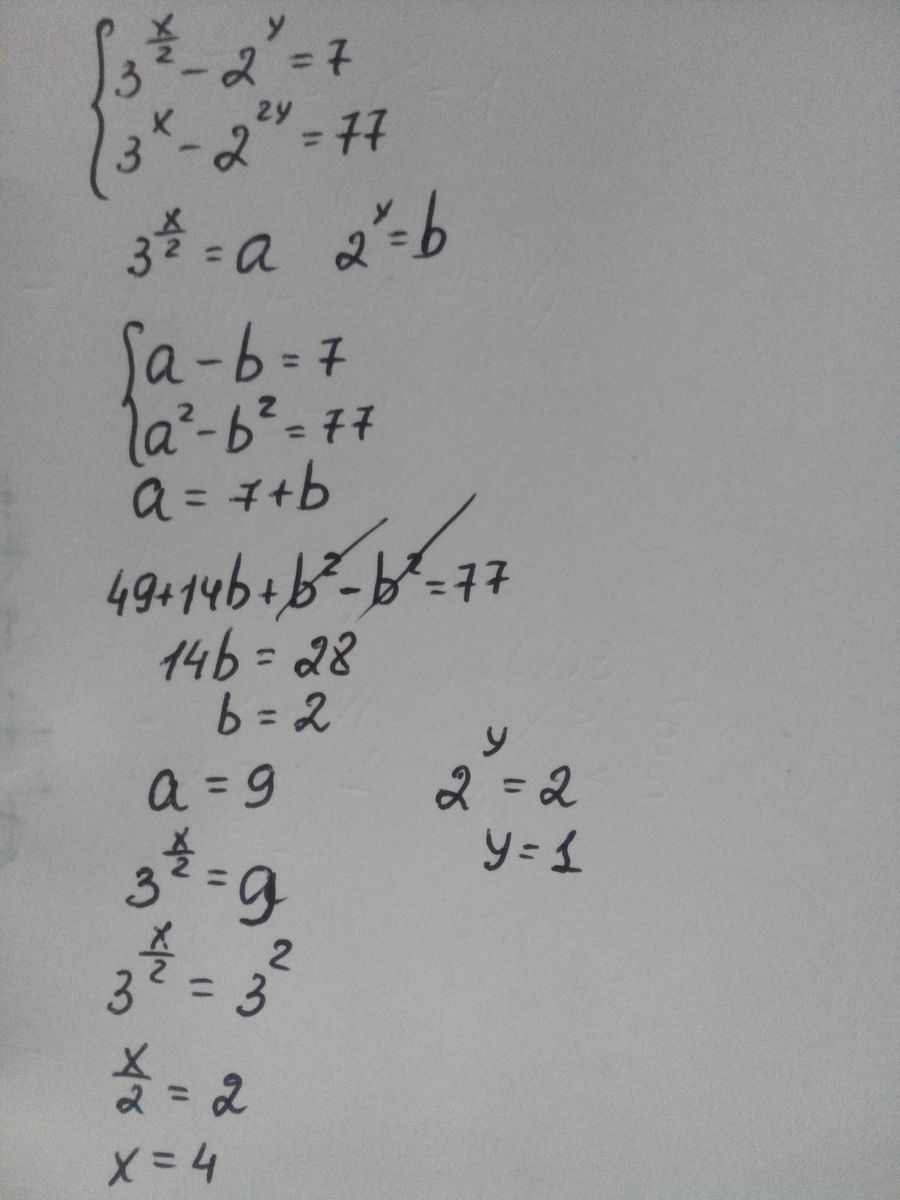 3^{x/2} - 2^y = 7
3^x - 2^{2y} = 77
3^{x/2} = a 2^y = b
a - b = 7
a² - b² = 77
a = 7 + b
49 + 14b + b² - b² = 77
14b = 28
b = 2
a = 9 2^y = 2
3^{x/2} = 9 y = 1
3^{x/2} = 3²
x/2 = 2
x = 4